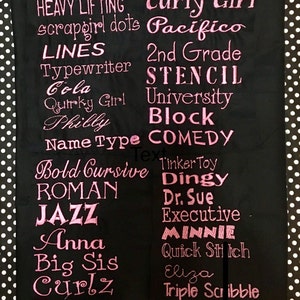 HEAVY LIFTING
scrapgirl dots
LINES
Typewriter
Cola
Quirky Girl
Philly
Name Type
Bold Cursive
ROMAN
JAZZ
Anna
Big Sis
Curlz
Curly Girl
Pacifico
2nd Grade
STENCIL
University
Block
COMEDY
Text
TinkerToy
Dingy
Dr. Sue
Executive
MINNIE
Quick Stitch
Eliza
Triple Scribble